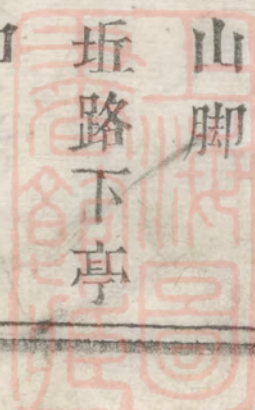 山脚
坵路下亭